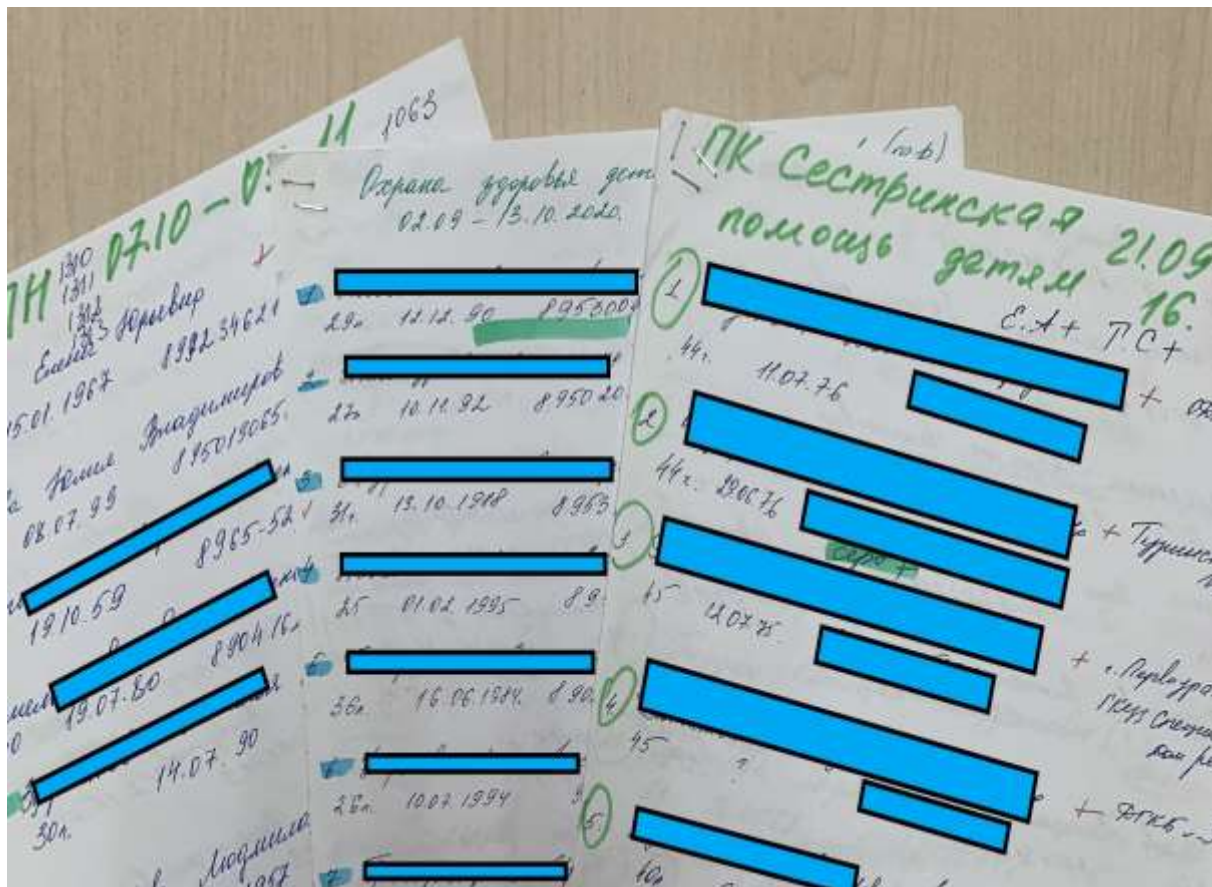 1063
07.10 - 0
11
1310
1311
1312
1313
Юрьевна
15.01.1967 899234621
Юлия Владимиров
08.07.99 895019065
19.10.59 8965-52
19.07.80 890416
14.07.90
30л.
Людмила
1957
Охрана здоровья дет
02.09 - 13.10.2020.
1
29л. 12.12.90 895300
2
27л 10.11.92 895020
3
31л. 13.10.1988 8953
4
25 01.02.1995 89
5
36л. 16.06.1984. 890
6
26л. 10.07.1994
7
ПК Сестринская 21.09
помощь детям 16.
1
Е.А + Т.С +
44г. 11.07.76 +
2
44г. 29.06.76 +
3
45 12.07.75 +
4
45 ? +
5.
40л